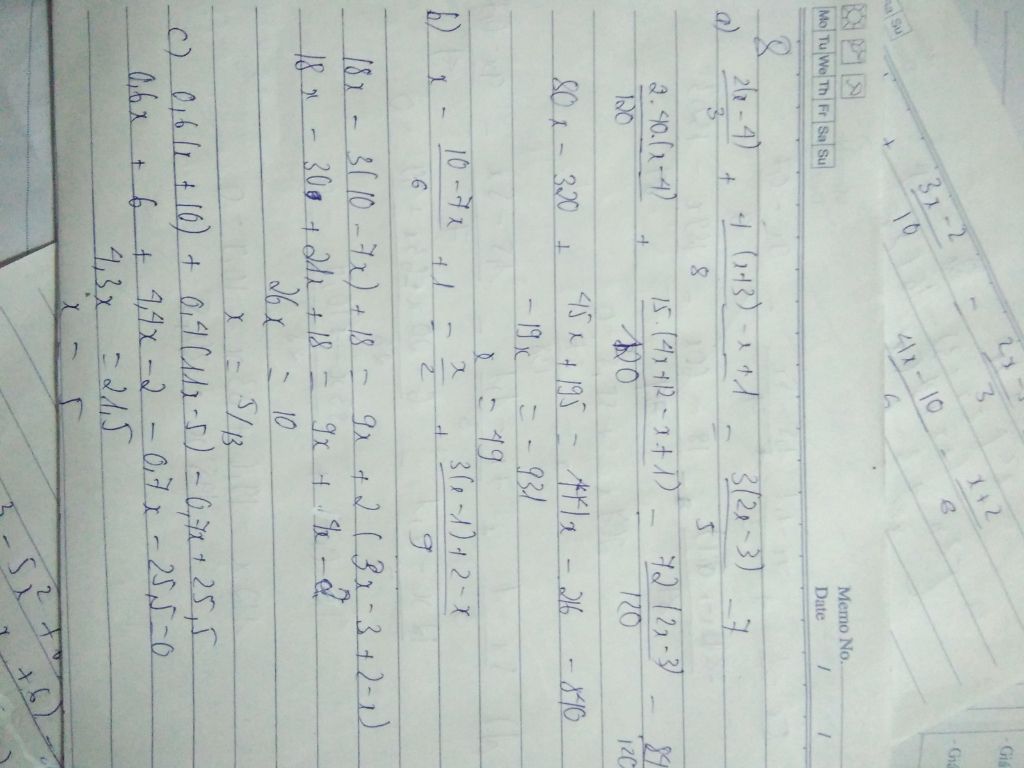 Memo No.
Mo Tu We Th Fr Sa Su
Date / /
8
a) 2(x - 4)/3 + 4(x+3) - x + 1/8 = 3(2x - 3)/5 - 7
2.40.(x - 4)/120 + 15.(4x + 12 - x + 1)/120 = 72(2x - 3)/120 - 84
80x - 320 + 45x + 195 = 144x - 216 - 840
- 19x = - 931
x = 49
b) x - 10 - 7x/6 + 1 = x/2 + 3(x - 1) + 2 - x/9
18x - 3(10 - 7x) + 18 = 9x + 2(3x - 3 + 2 - x)
18x - 30 + 21x + 18 = 9x + 4x - 2
26x = 10
x = 5/13
c) 0,6(x + 10) + 0,4(11x - 5) = 0,7x + 25,5
0,6x + 6 + 4,4x - 2 - 0,7x - 25,5 = 0
4,3x = 21,5
x = 5
3x - 2/10
4x - 10
x + 2/6